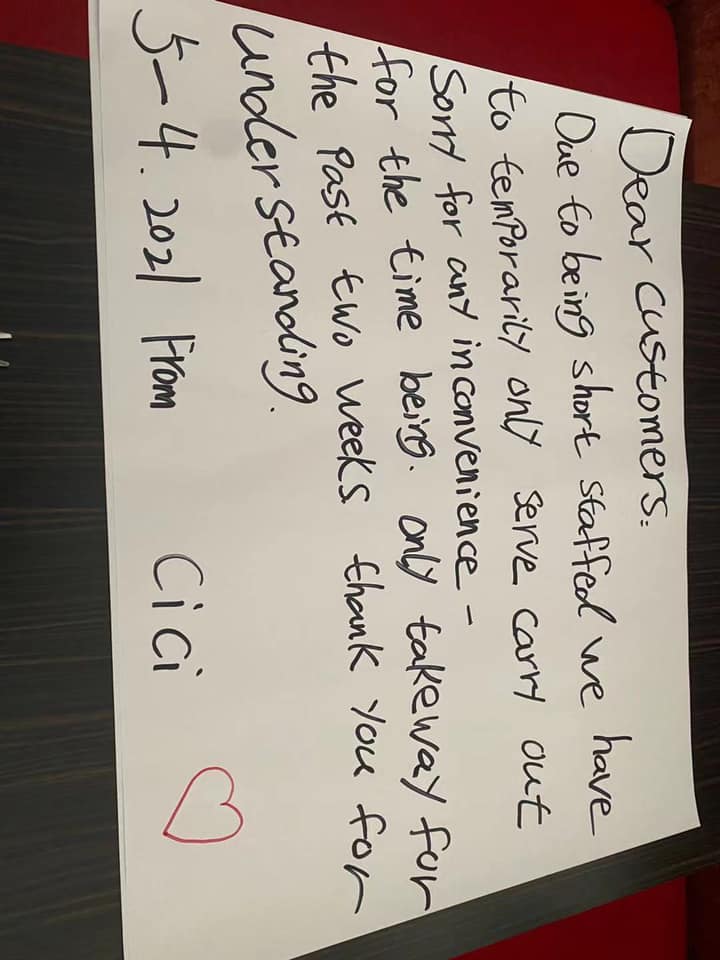 Dear customers:
Due to being short staffed we have
to temporarily only serve carry out
Sorry for any inconvenience -
for the time being. only takeway for
the past two weeks thank you for
understanding.
5-4.2021 From CiCi